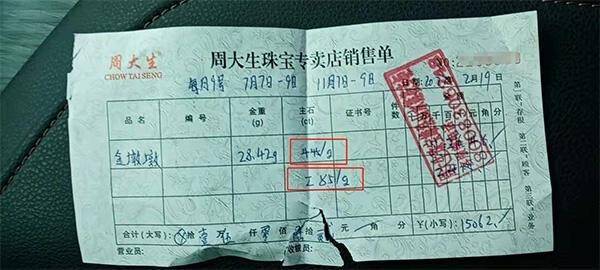 周大生
CHOW TAI SENG
周大生珠宝专卖店销售单
每月9号 7月7日-9日 11月7日-9日
2月19日
品名 编号 金重(g) 主石(ct) 证书号 件数 万 千 百 十 元 角 分
金墩墩 28.42g 446/g
工85/g
合计(大写): 拾 壹 仟 佰 拾 元 角 分 ¥(小写): 15062
营业员: 收银员:
第一联:存根 第二联:顾客 第三联:业务